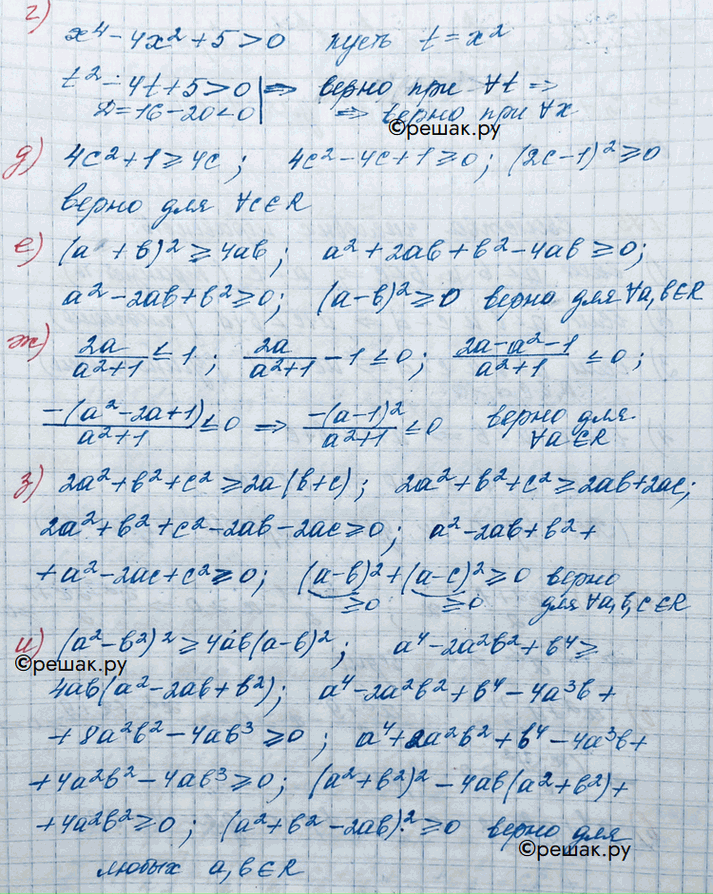 г)
x⁴ - 4x² + 5 > 0 пусть t = x²
t² - 4t + 5 > 0 | ⇒ верно при ∀t ⇒
D = 16 - 20 < 0 | ⇒ верно при ∀x
©решак.ру
д) 4c² + 1 ≥ 4c ; 4c² - 4c + 1 ≥ 0 ; (2c - 1)² ≥ 0
верно для ∀c∈R
е) (a + b)² ≥ 4ab ; a² + 2ab + b² - 4ab ≥ 0 ;
a² - 2ab + b² ≥ 0 ; (a - b)² ≥ 0 верно для ∀a, b∈R
ж) 2a/(a²+1) ≤ 1 ; 2a/(a²+1) - 1 ≤ 0 ; (2a - a² - 1)/(a²+1) ≤ 0 ;
-(a² - 2a + 1)/(a²+1) ≤ 0 ⇒ -(a-1)²/(a²+1) ≤ 0 верно для
∀a∈R
з) 2a² + b² + c² ≥ 2a(b+c) ; 2a² + b² + c² ≥ 2ab + 2ac ;
2a² + b² + c² - 2ab - 2ac ≥ 0 ; a² - 2ab + b² +
+ a² - 2ac + c² ≥ 0 ; (a-b)² + (a-c)² ≥ 0 верно
≥0 ≥0 для ∀a, b, c∈R
и) (a² - b²)² ≥ 4ab(a-b)² ; a⁴ - 2a²b² + b⁴ ≥
©решак.ру
4ab(a² - 2ab + b²) ; a⁴ - 2a²b² + b⁴ - 4a³b +
+ 8a²b² - 4ab³ ≥ 0 ; a⁴ + 2a²b² + b⁴ - 4a³b +
+ 4a²b² - 4ab³ ≥ 0 ; (a² + b²)² - 4ab(a² + b²) +
+ 4a²b² ≥ 0 ; (a² + b² - 2ab)² ≥ 0 верно для
©решак.ру
любых a, b∈R